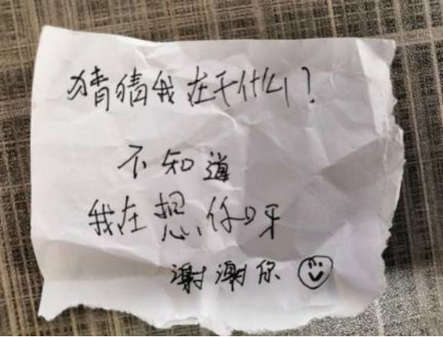 猜猜我在干什么？
不知道
我在想你呀
谢谢你